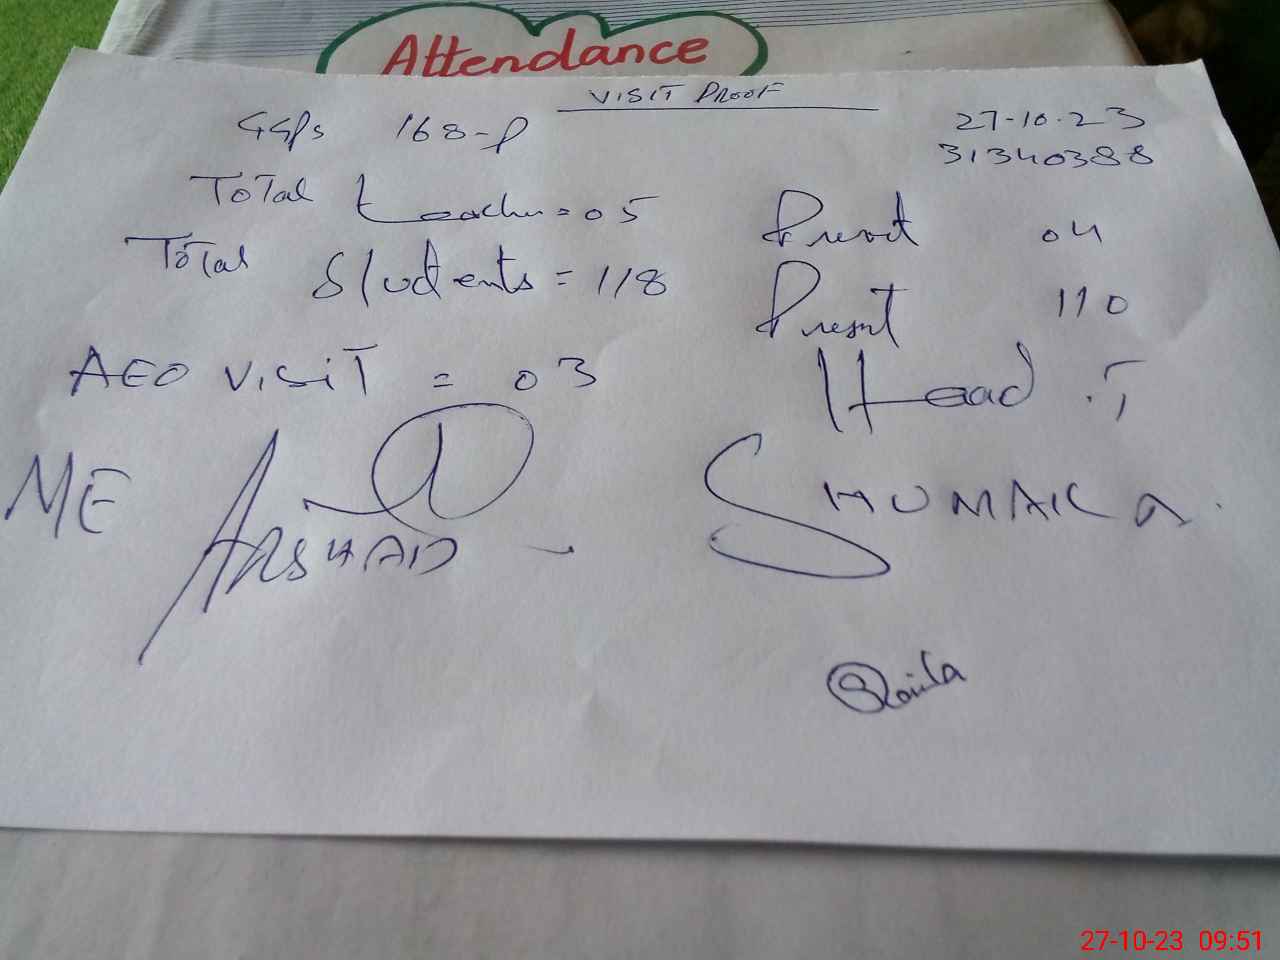 Attendance
VISIT PROOF
GGPS 168-P 27-10-23
31340388
Total teacher = 05 Present 04
Total Students = 118 Present 110
AEO VISIT = 03 Head .T
ME ARSHAD SHUMAILA
27-10-23 09:51